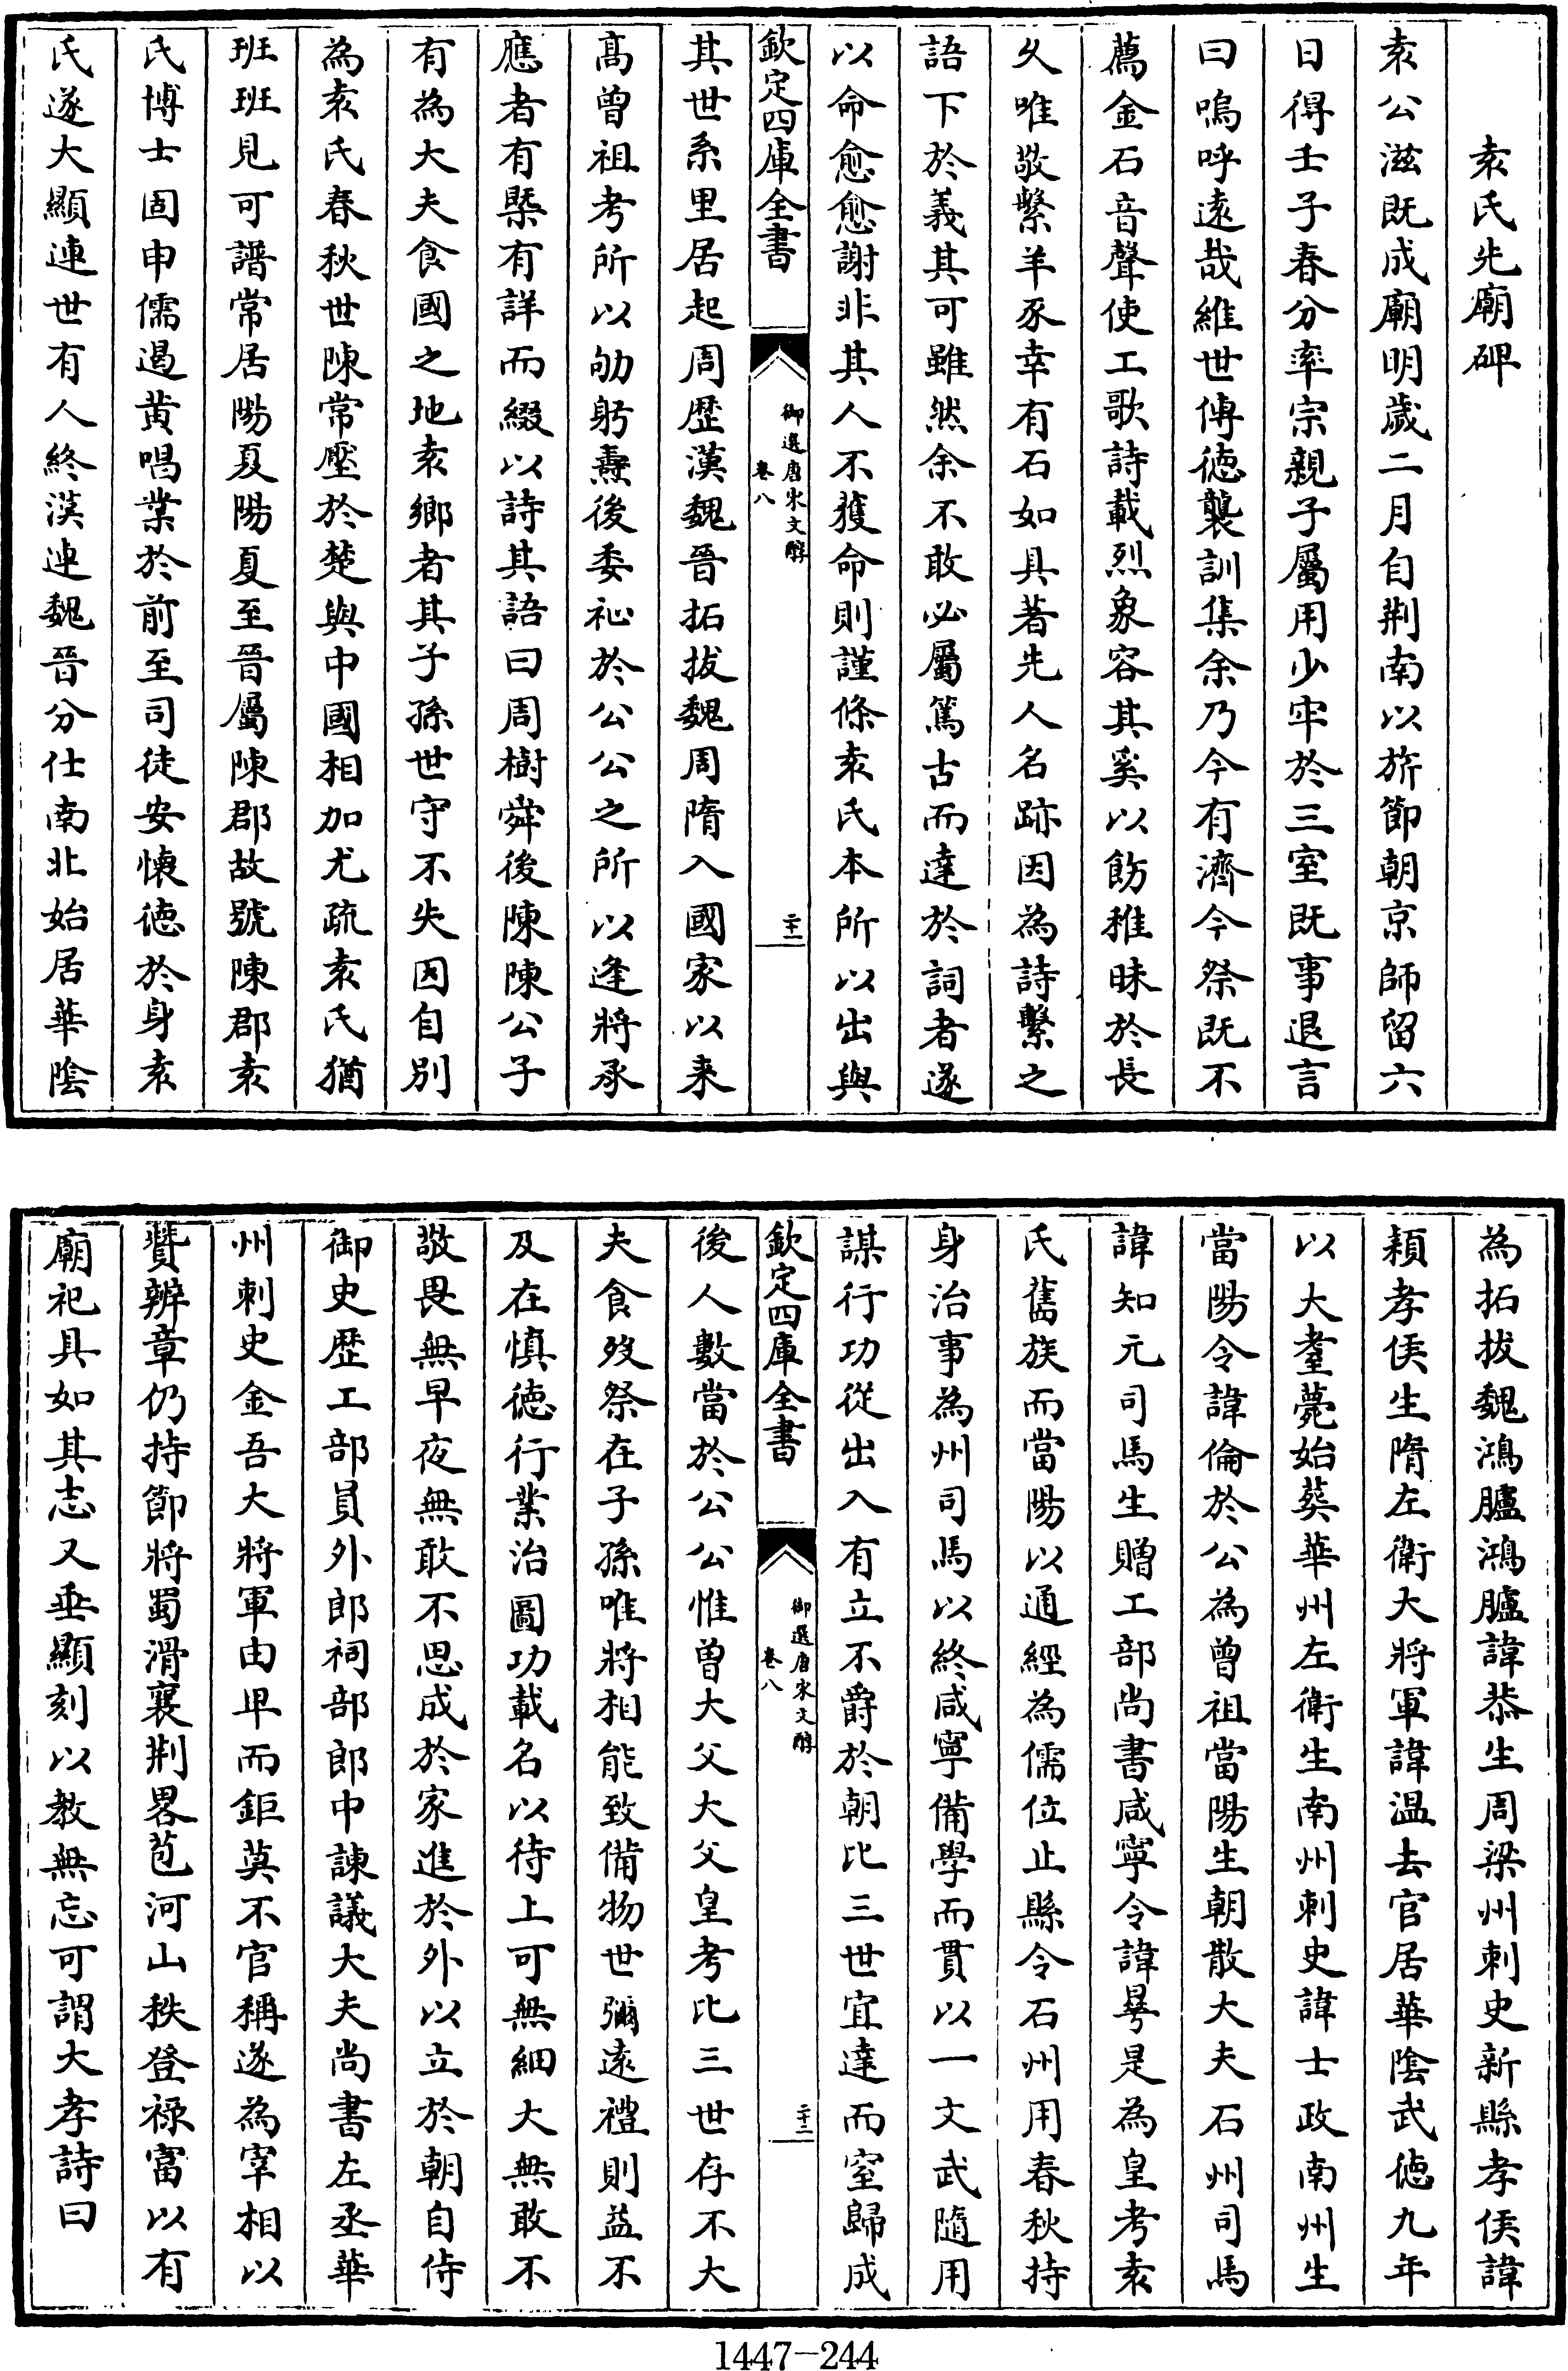 袁氏先廟碑
袁公滋既成廟明歲二月自荆南以旂節朝京師留六
日得壬子春分率宗親子屬用少牢於三室既事退言
曰嗚呼遠哉維世傳徳襲訓集余乃今有濟今祭既不
薦金石音聲使工歌詩載烈象容其奚以飭稚昧於長
久唯敬繫羊豕幸有石如具著先人名跡因為詩繫之
語下於義其可雖然余不敢必屬篤古而達於詞者遂
以命愈愈謝非其人不獲命則謹條袁氏本所以出與
欽定四庫全書
御選唐宋文醇
卷八
二十一
其世系里居起周歴漢魏晉拓拔魏周隋入國家以来
髙曾祖考所以劬躬燾後委祉於公公之所以逢將承
應者有槩有詳而綴以詩其語曰周樹舜後陳陳公子
有為大夫食國之地袁鄉者其子孫世守不失因自别
為袁氏春秋世陳常壓於楚與中國相加尤疏袁氏猶
班班見可譜常居陽夏陽夏至晉屬陳郡故號陳郡袁
氏博士固申儒遏黄唱業於前至司徒安懐徳於身袁
氏遂大顯連世有人終漢連魏晉分仕南北始居華陰
為拓拔魏鴻臚鴻臚諱恭生周梁州刺史新縣孝侯諱
頴孝侯生隋左衛大將軍諱温去官居華陰武徳九年
以大耋薨始葬華州左衛生南州刺史諱士政南州生
當陽令諱倫於公為曾祖當陽生朝散大夫石州司馬
諱知元司馬生贈工部尚書咸寧令諱㬇是為皇考袁
氏舊族而當陽以通經為儒位止縣令石州用春秋持
身治事為州司馬以終咸寧備學而貫以一文武隨用
謀行功從出入有立不爵於朝比三世宜達而窒歸成
欽定四庫全書
御選唐宋文醇
卷八
二十二
後人數當於公公惟曾大父大父皇考比三世存不大
夫食歿祭在子孫唯將相能致備物世彌遠禮則益不
及在慎徳行業治圖功載名以待上可無細大無敢不
敬畏無早夜無敢不思成於家進於外以立於朝自侍
御史歴工部員外郎祠部郎中諫議大夫尚書左丞華
州刺史金吾大將軍由卑而鉅莫不官稱遂為宰相以
贊辨章仍持節將蜀滑襄荆畧苞河山秩登祿富以有
廟祀具如其志又垂顯刻以教無忘可謂大孝詩曰
1447-244